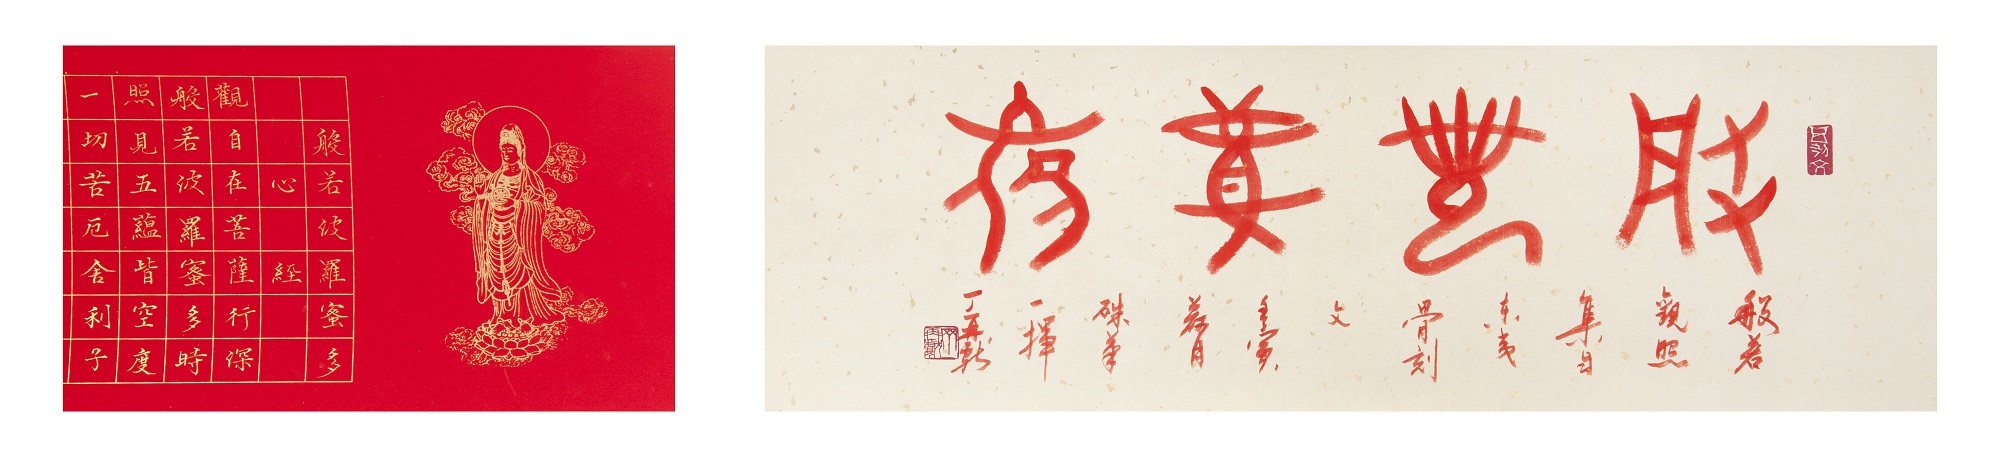 般若波羅蜜多
心經
觀自在菩薩行深
般若波羅蜜多時
照見五蘊皆空度
一切苦厄舍利子
般若
觀照
般若
觀照
集自
東夷
骨刻
文
硃筆
一揮